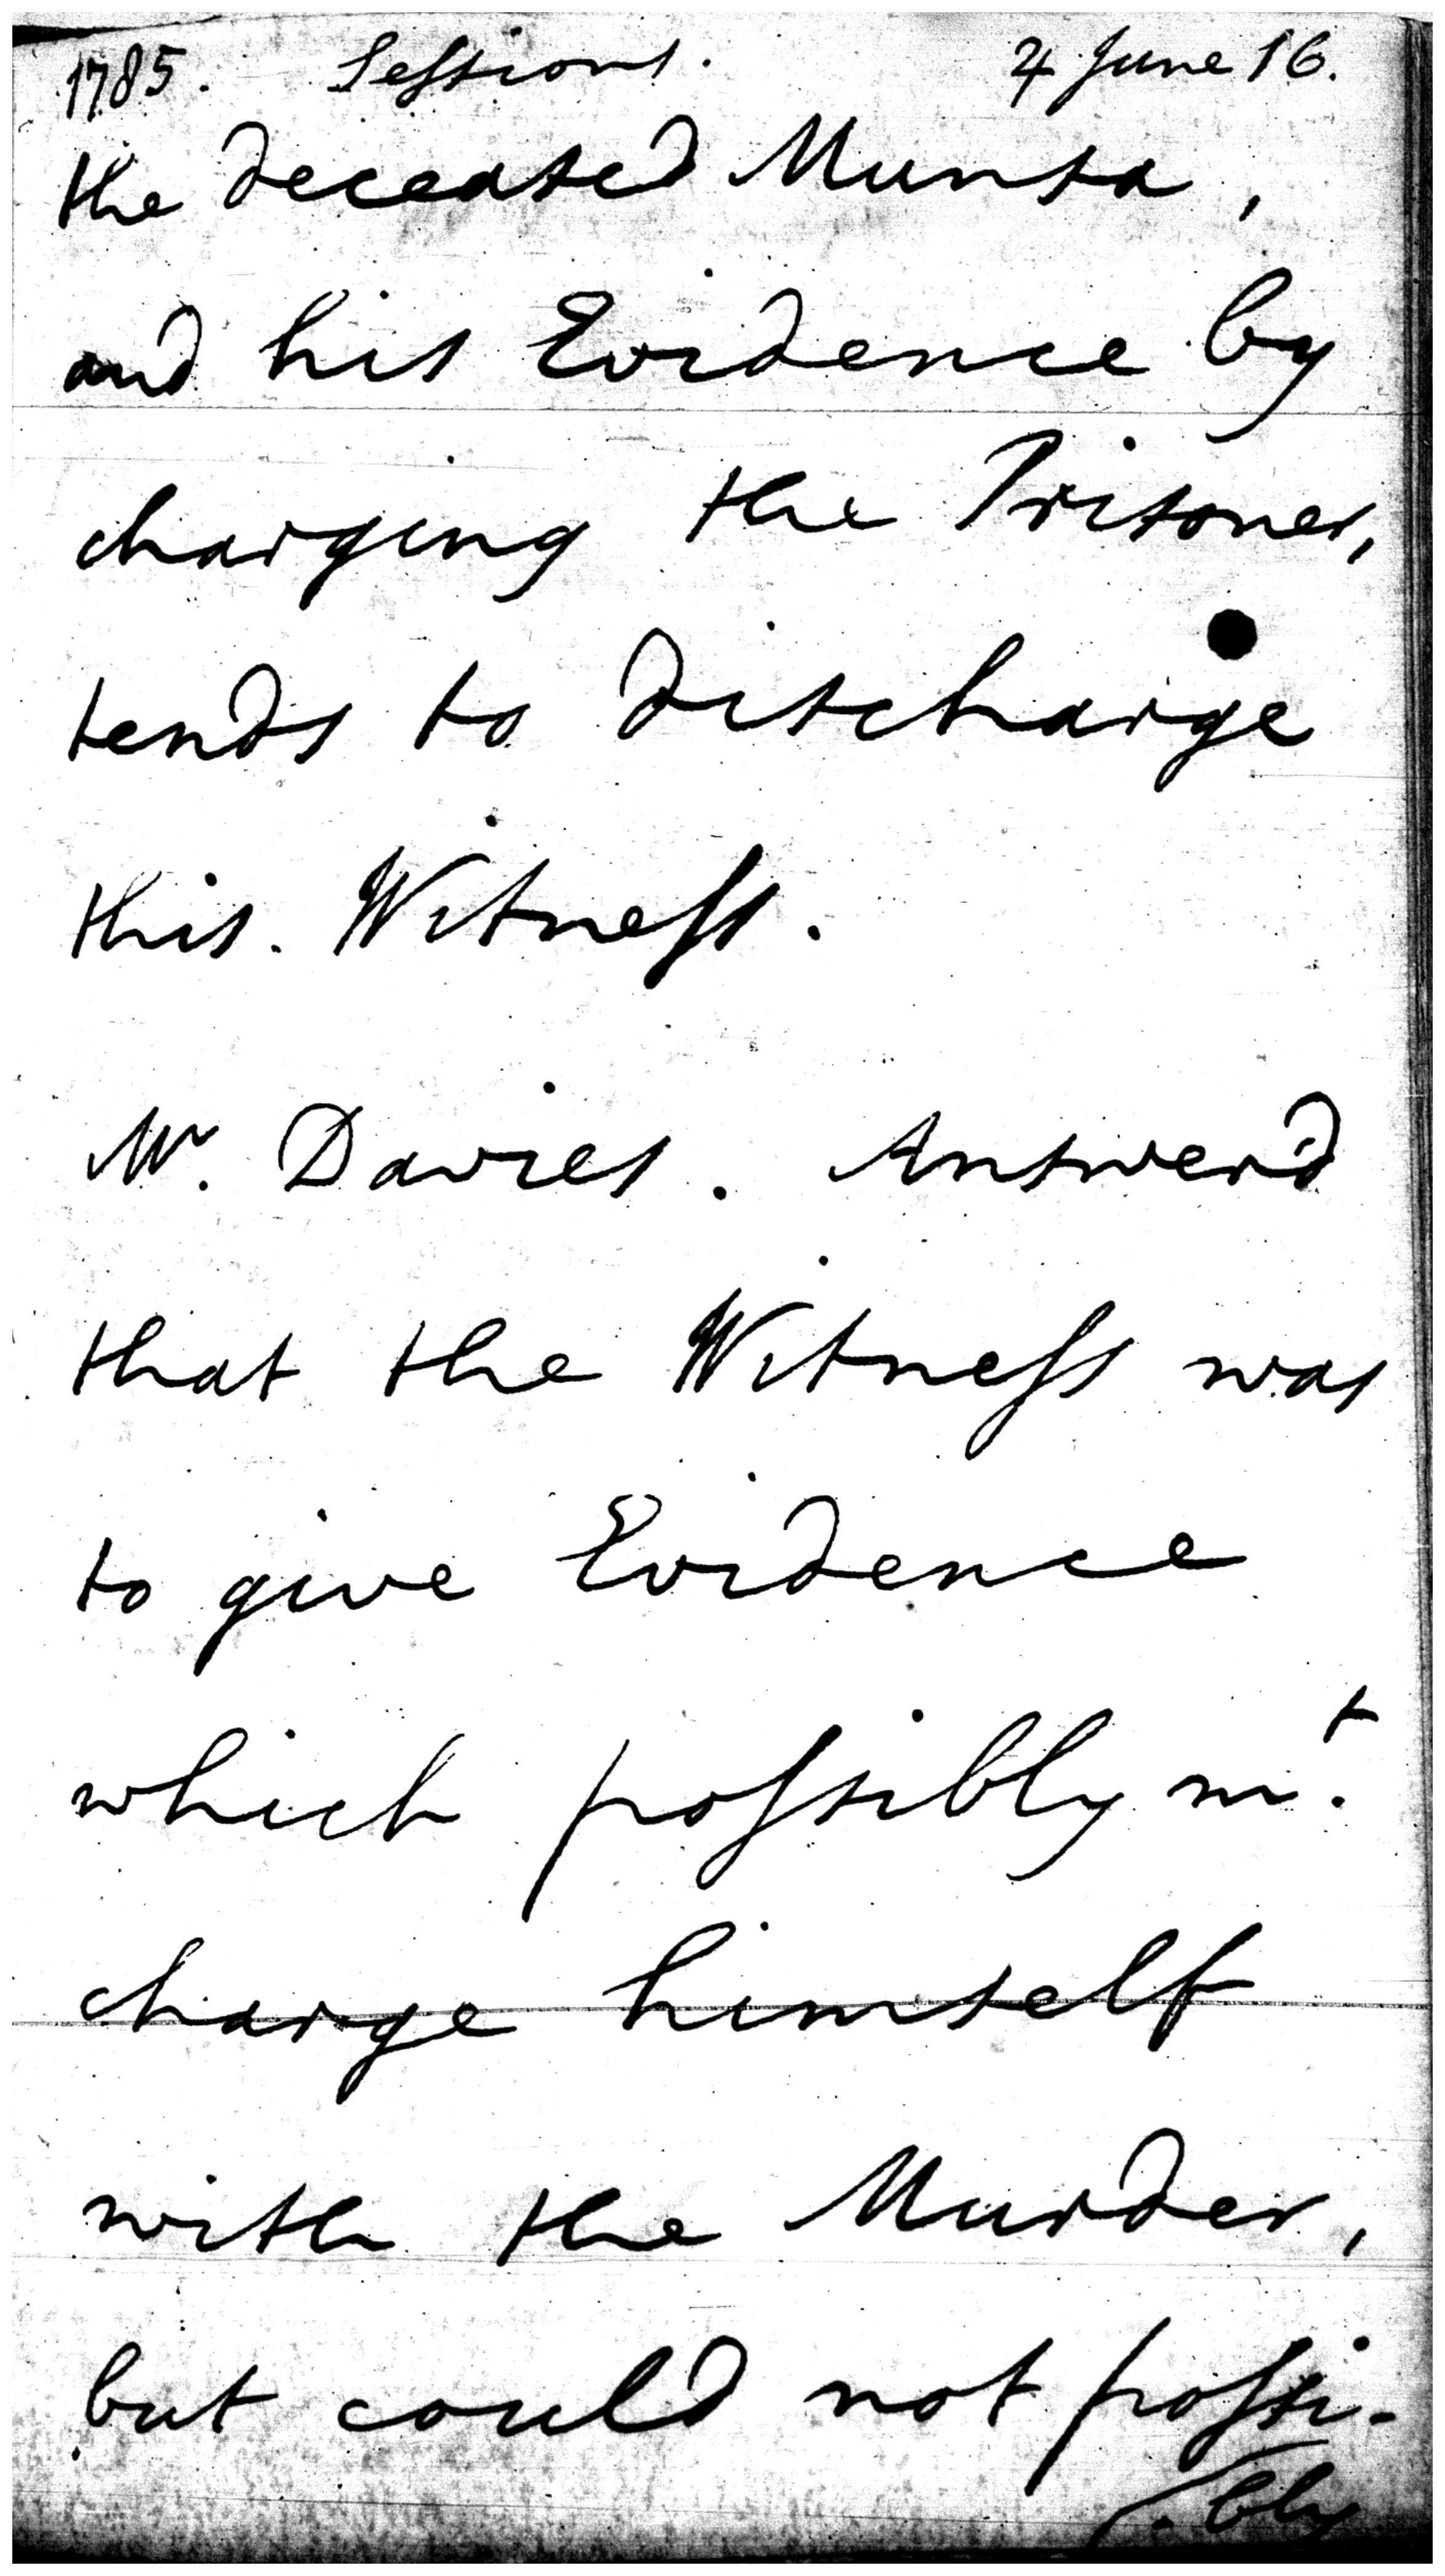 1785. Sessions. 4 June 16.
the deceased Munsa,
and his Evidence by
charging the Prisoner,
tends to discharge
this Witness.
Mr. Davies. Answer'd
that the Witness was
to give Evidence
which possibly mt.
charge himself
with the Murder,
but could not possi-
bly